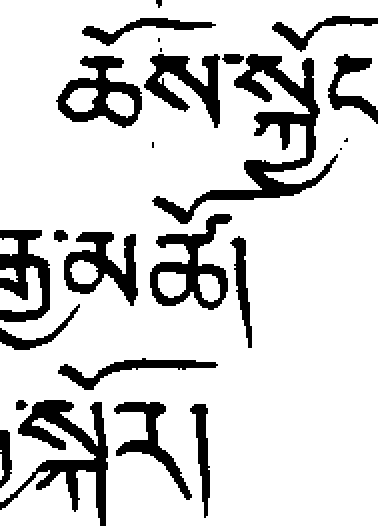 ཆོས་སྐྱོང
རྒྱ་མཚོ།
་སྐོར།